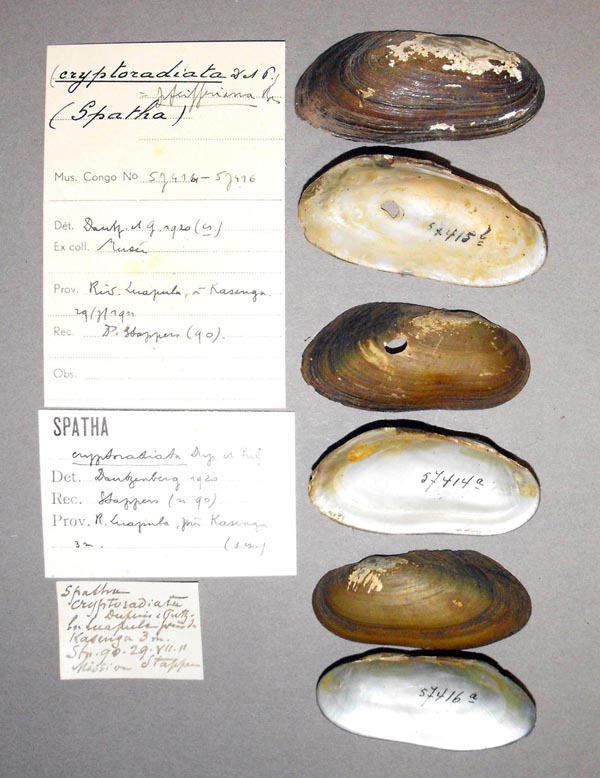 (cryptoradiata D et P.)
= pfeifferiana
(Spatha)
Mus. Congo No 57414-57416
Dét. Dautz. et G. 1920
Ex coll. Musée
Prov. Riv. Luapula, à Kasenga
29/7/1911
Rec. Stappers (90).
Obs.
SPATHA
cryptoradiata Dup. et Putz
Det. Dautzenberg 1920
Rec. Stappers (n 90)
Prov. R. Luapula, près Kasenga
3 m. (3 ex.)
Spatha
cryptoradiata
Dupuis & Putz.
Luapula près de
Kasenga 3 m.
Stn. 90. 29.VII.11
Mission Stappers
57415 b
57414 a
57416 a